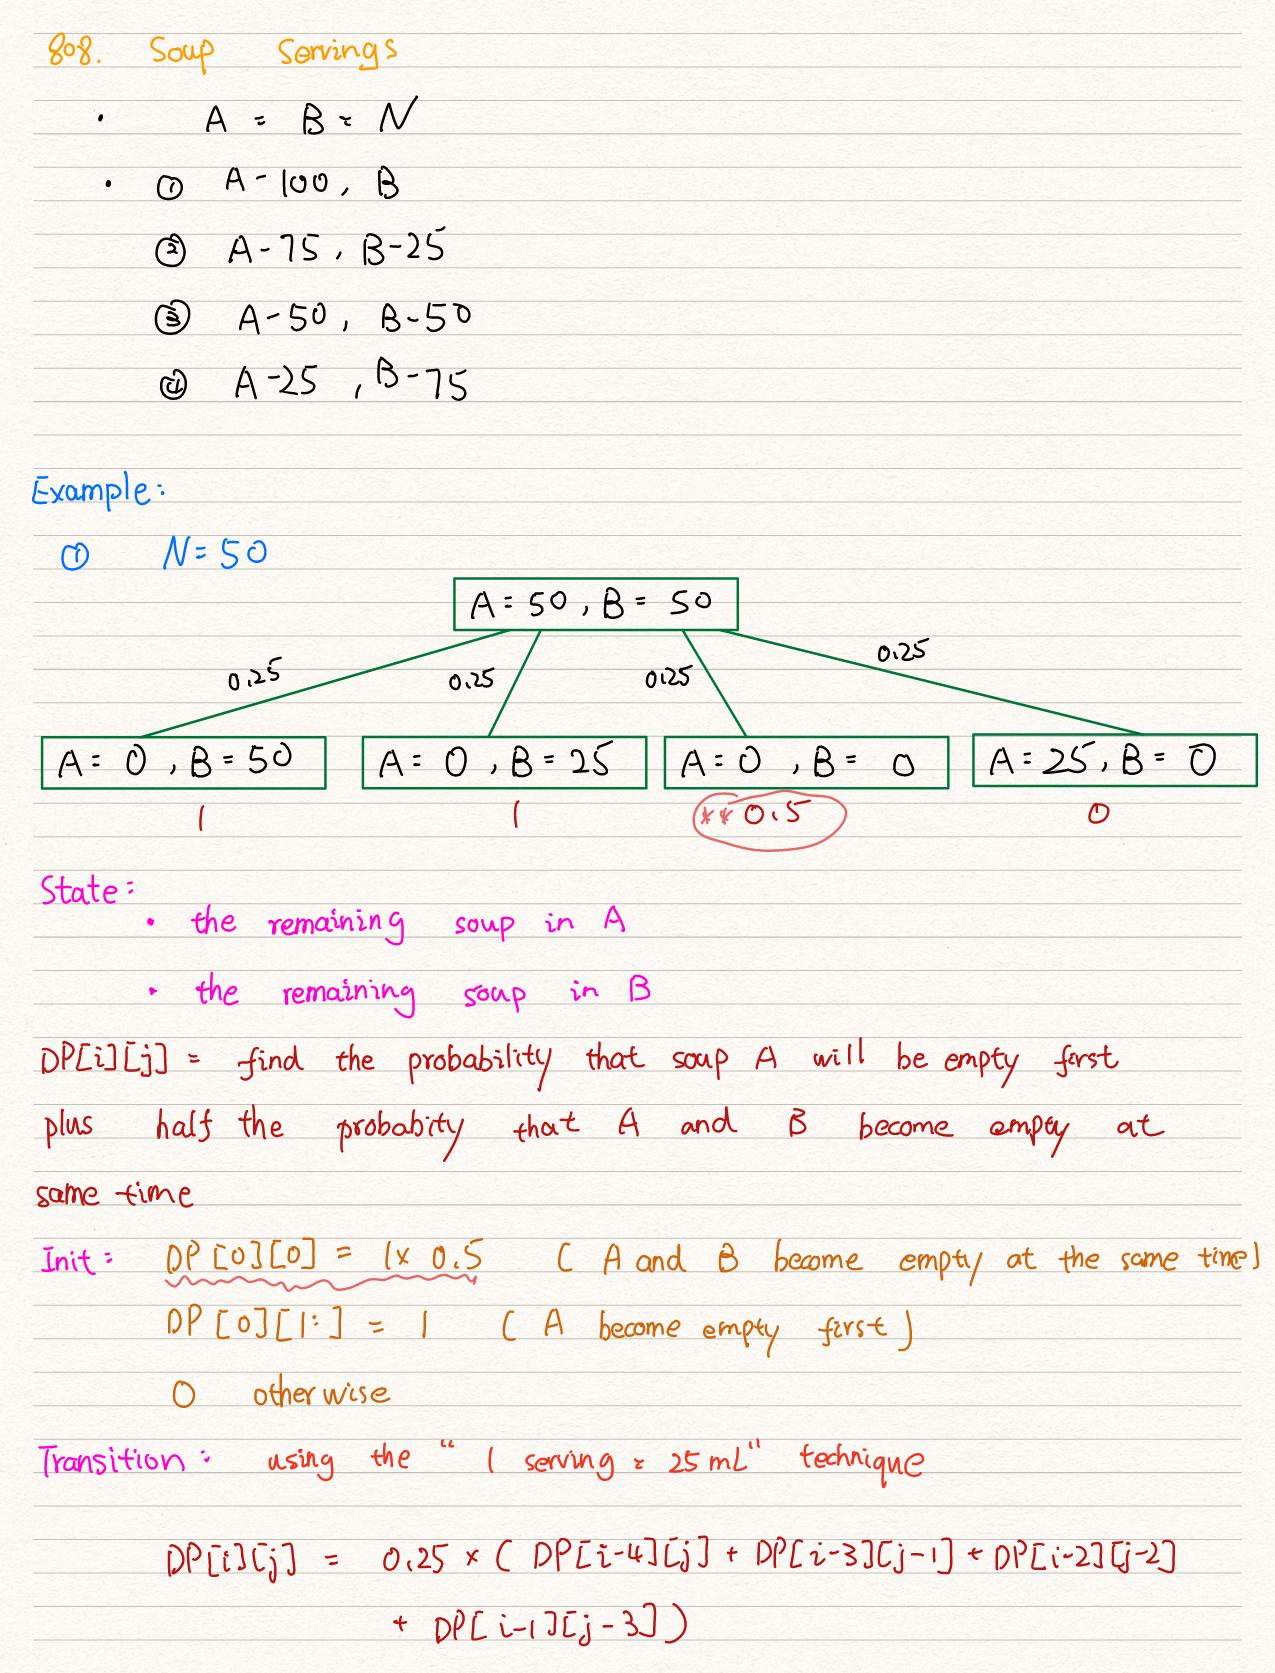 808. Soup Servings
• A = B = N
• ① A-100, B
② A-75, B-25
③ A-50, B-50
④ A-25, B-75
Example:
① N=50
A = 50, B = 50
0.25 0.25 0.25 0.25
A = 0, B = 50 A = 0, B = 25 A = 0, B = 0 A = 25, B = 0
1 1 ** 0.5 0
State:
• the remaining soup in A
• the remaining soup in B
DP[i][j] = find the probability that soup A will be empty first
plus half the probabity that A and B become empty at
same time
Init: DP[0][0] = 1x 0.5 ( A and B become empty at the same time)
DP[0][1:] = 1 ( A become empty first )
0 otherwise
Transition: using the "1 serving = 25 mL" technique
DP[i][j] = 0.25 × ( DP[i-4][j] + DP[i-3][j-1] + DP[i-2][j-2]
+ DP[i-1][j-3])